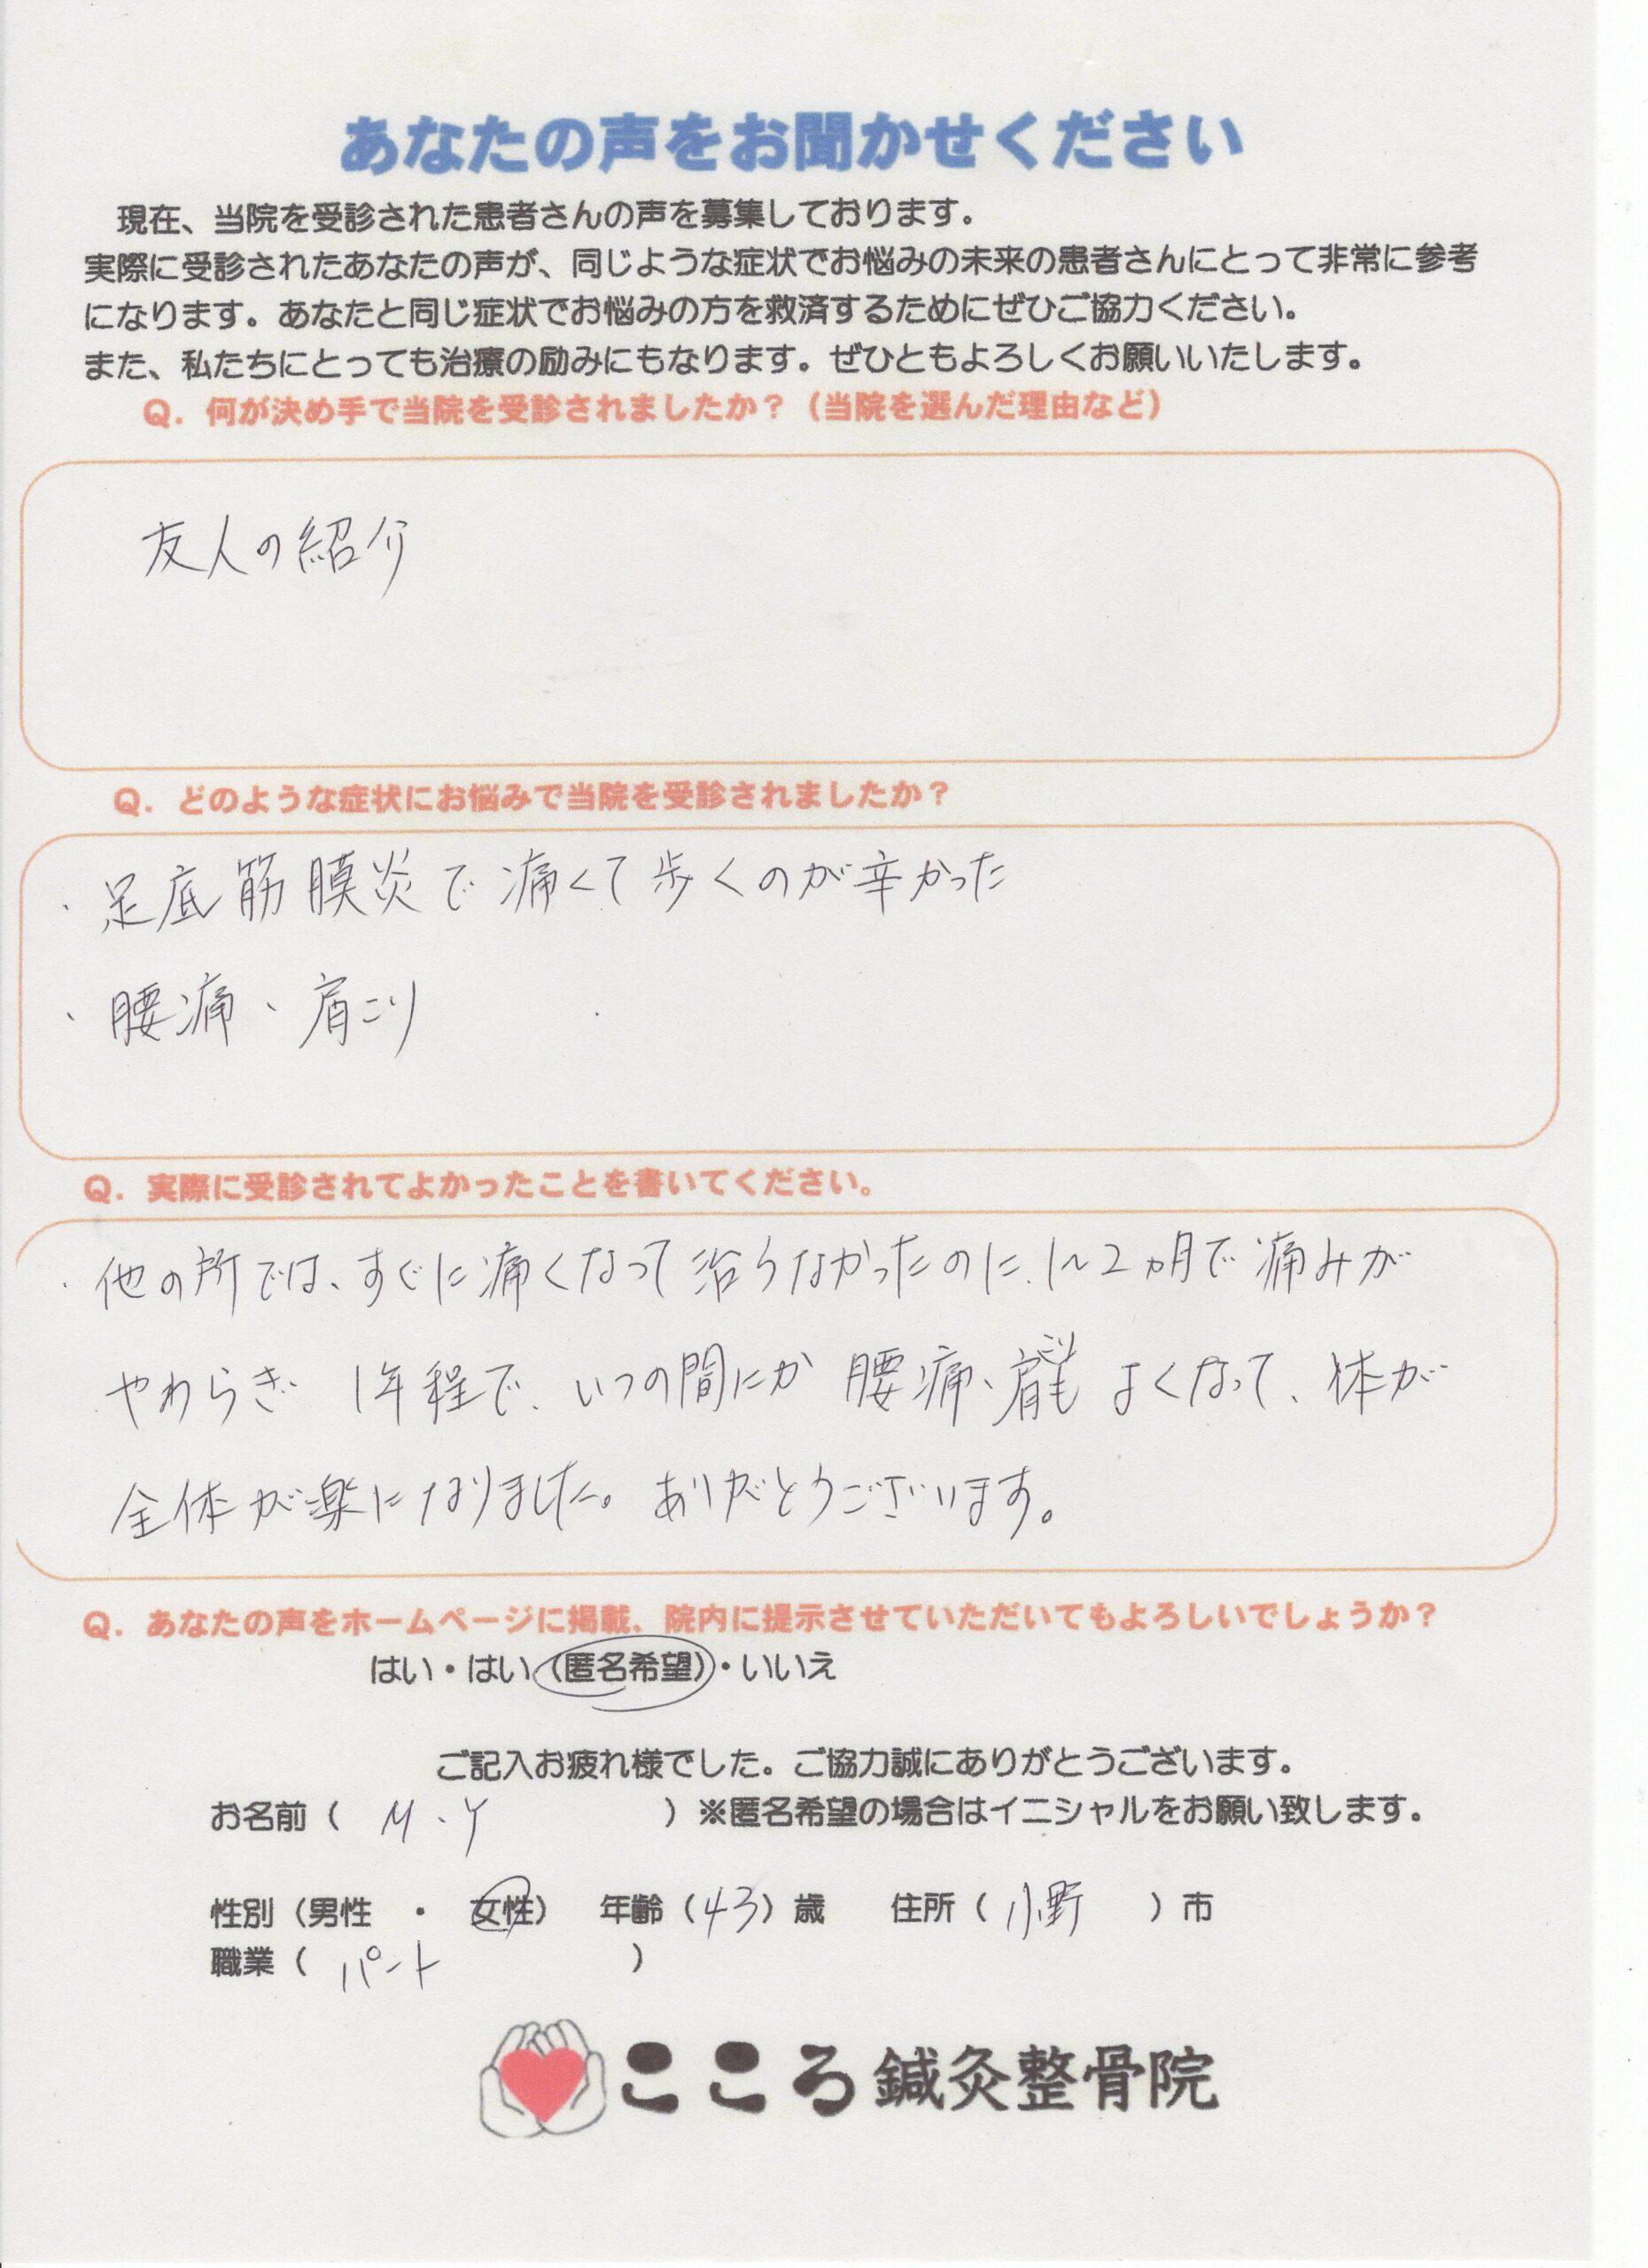 あなたの声をお聞かせください
現在、当院を受診された患者さんの声を募集しております。
実際に受診されたあなたの声が、同じような症状でお悩みの未来の患者さんにとって非常に参考
になります。あなたと同じ症状でお悩みの方を救済するためにぜひご協力ください。
また、私たちにとっても治療の励みにもなります。ぜひともよろしくお願いいたします。
Q. 何が決め手で当院を受診されましたか？（当院を選んだ理由など）
友人の紹介
Q. どのような症状にお悩みで当院を受診されましたか？
・足底筋膜炎で痛くて歩くのが辛かった
・腰痛、肩こり
Q. 実際に受診されてよかったことを書いてください。
・他の所では、すぐに痛くなって治らなかったのに、1～2ヵ月で痛みが
やわらぎ 1年程で、いつの間にか腰痛、肩こりも よくなって、体が
全体が楽になりました。ありがとうございます。
Q. あなたの声をホームページに掲載、院内に提示させていただいてもよろしいでしょうか？
はい・はい（匿名希望）・いいえ
ご記入お疲れ様でした。ご協力誠にありがとうございます。
お名前（ M.Y ）※匿名希望の場合はイニシャルをお願い致します。
性別（男性 ・ 女性） 年齢（43）歳 住所（ 小野 ）市
職業（ パート ）
こころ鍼灸整骨院